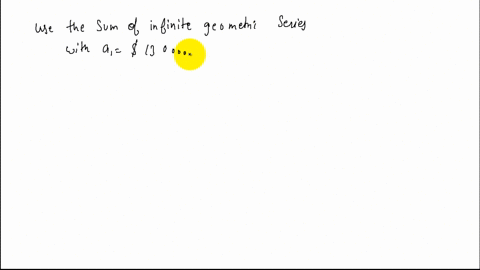 use the Sum of infinite geometric Series
with a₁= $ 130000.